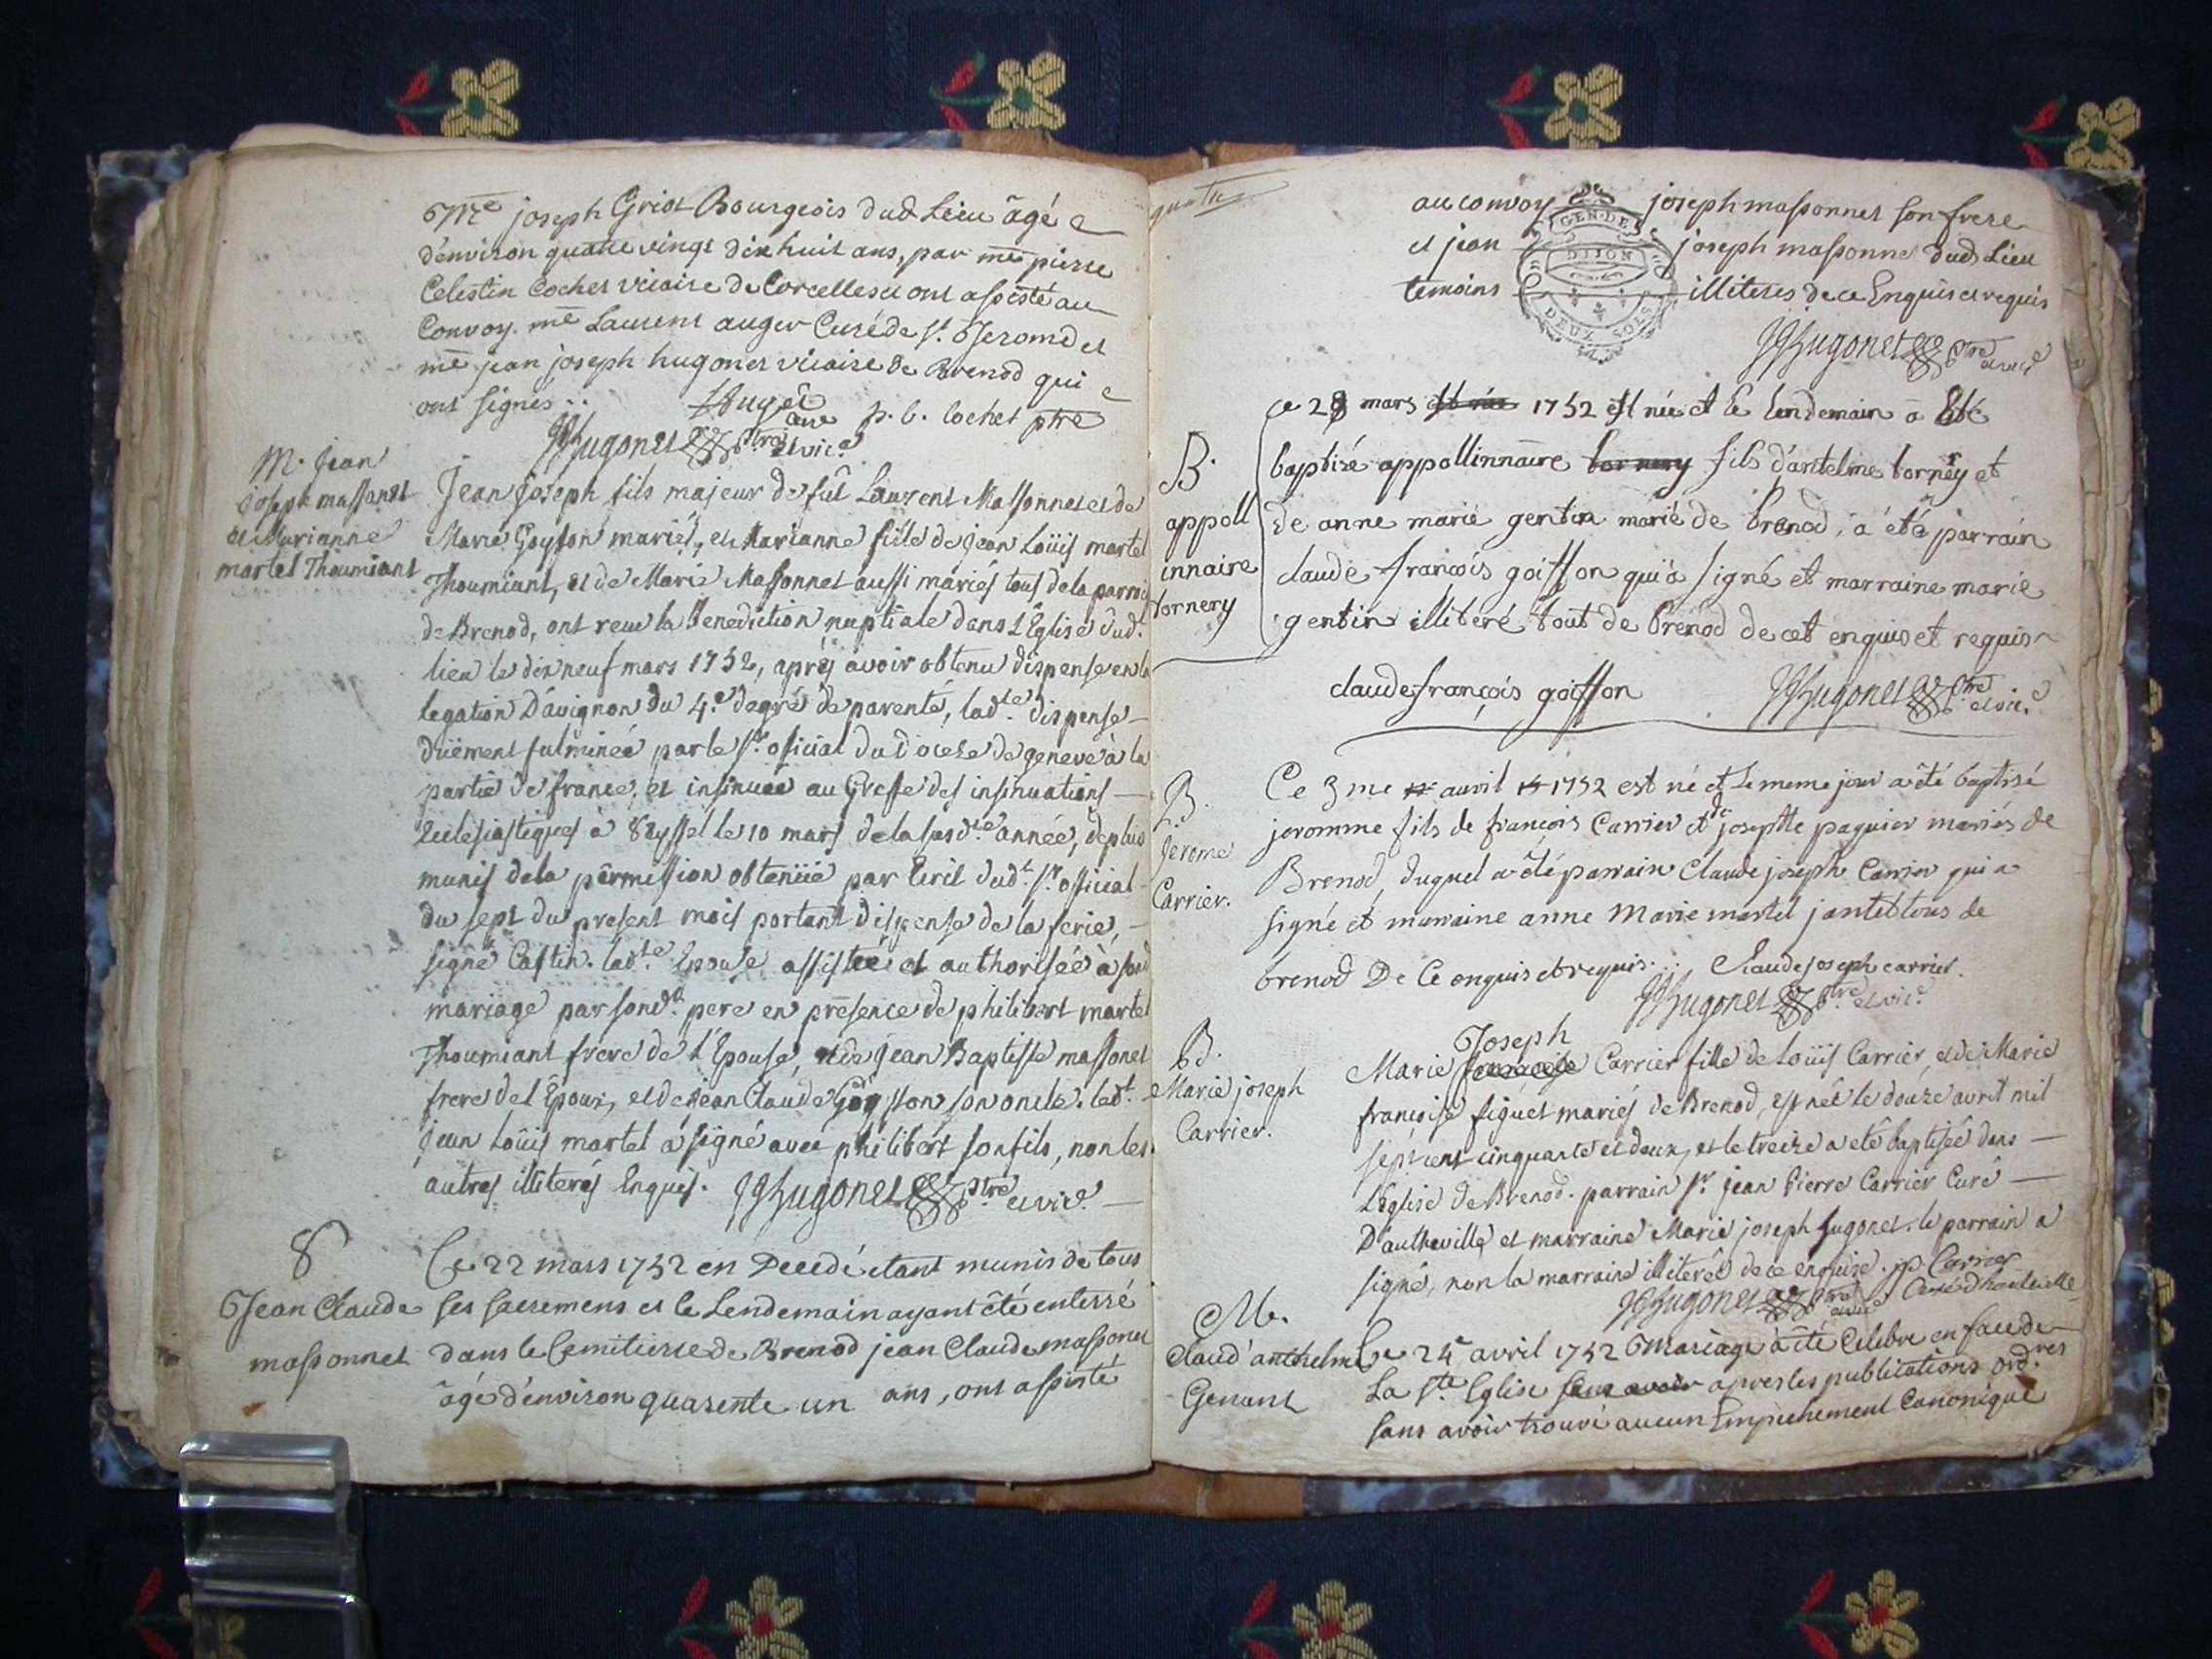 Me joseph Griot Bourgeois dud Lieu âgé
d'environ quatre vingt dix huit ans, par me pierre
Celestin Cochet vicaire de Corcelles et ont assisté au
Convoy. me Laurent auger Curé de st. Jerome et
me jean joseph hugonet vicaire de Brenod qui
ont signés..
Auger
Curé p. c. Cochet ptre
JJhugonet ptre et vic.e
M. Jean
joseph massonet
et Marianne
martel Thoumiant
Jean Joseph fils majeur de fût Laurent Massonnet et de
Marie Goyson mariés, et Marianne fille de Jean Loüis martel
Thoumiant, et de Marie Massonnet aussi mariés tous de la parroi
de Brenod, ont receu la Benediction nuptiale dans L'Eglise dud.t
lieu le dix neuf mars 1752, aprés avoir obtenu dispense en la
legation D'avignon du 4.e degré de parenté, lad.te dispense
düement fulminée par le sr. oficial du diocese de geneve à la
partie de france, et insinuée au Greffe des insinuations
Ecclesiastiques à Seyssel le 10 mars de la susd.te année, de plus
munis de la permission obtenüe par Ecrit dud.t sr. official
du sept du present mois portant dispense de la ferie,
signé Castin. lad.te Epouse assistée et authorisée à son
mariage par sond.t pere en presence de philibert martel
Thoumiant frere de L'Epouse, et de Jean Baptiste massonet
frere de l'Epoux, et de jean Claude Goysson son oncle. led.t
Jean Loüis martel a signé avec philibert son fils, non les
autres illiterés Enquis. JJhugonet ptre et vic.e
8
Jean Claude
massonnet
Ce 22 mars 1752 en Decedé etant munis de tous
ses sacremens et le Lendemain ayant êté enterré
dans le Cemitiere de Brenod jean Claude massonet
âgé d'environ quarente un ans, ont assisté
quatre
au convoy joseph massonnet son frere
et jean joseph massonne dud Lieu
temoins illiteres de ce Enquis et requis
GEN. DE
DIJON
DEUX SOLS
JJhugonet ptre et vic.e
B.
appoll
innaire
tornery
ce 28 mars 1752 est née et le lendemain a eté
baptisé appollinnaire tornery fils d'antelme tornery et
de anne marie gentin marié de brenod, a été parrain
claude françois goiffon qui a signé et marraine marie
gentin illiteré tout de brenod de cet enquis et requis
claude françois goiffon JJhugonet ptre et vic.e
B.
Jerome
Carrier.
Ce 3me avril 1752 est né et le meme jour a êté baptisé
jeromme fils de françois Carrier et de josephte paguier mariés de
Brenod, duquel a êté parrain Claude joseph Carrier qui a
signé et marraine anne Marie martel jantet tous de
brenod De Ce enquis et requis. Claude joseph carrier.
JJhugonet ptre et vic.e
B.
Marie joseph
Carrier.
Joseph
Marie françoise Carrier fille de Loüis Carrier, et de Marie
françoise figuet mariés de Brenod, est née le douze avril mil
sept cent cinquante et deux, et le treize a eté baptisée dans
L'Eglise de Brenod. parrain sr. jean Pierre Carrier Curé
D'autheville et marraine Marie joseph hugonet. le parrain a
signé, non la marraine illiterée de ce enquise. jp Carrier
Curé d'hauteville
JJhugonet ptre et vic.e
M.
Claud'anthelme
Genant
Ce 24e avril 1752 Mariage à êté Celebre en face de
La ste. Eglise sans avoir apres les publications ord.res
sans avoir trouvé aucun Empechement Canonique